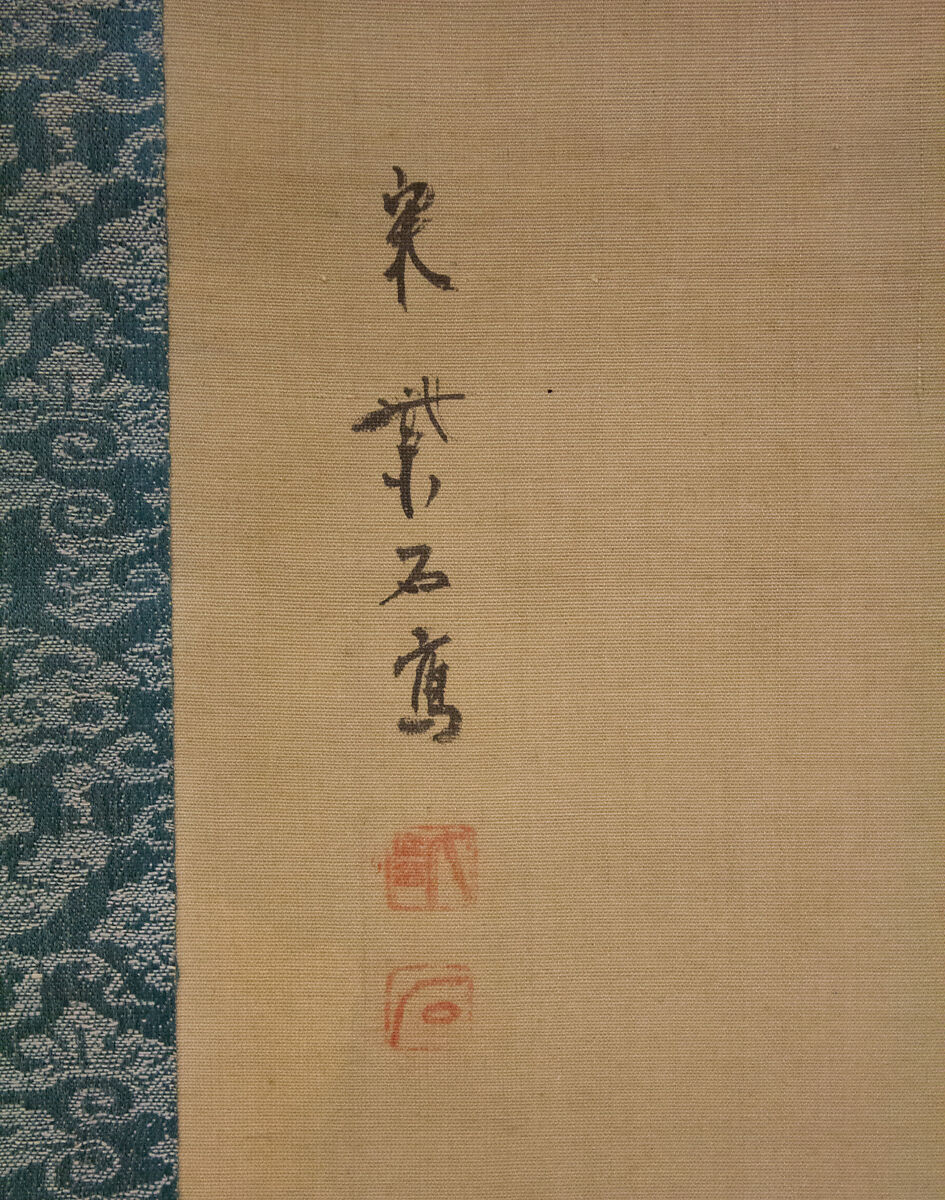 宋紫石寫
石